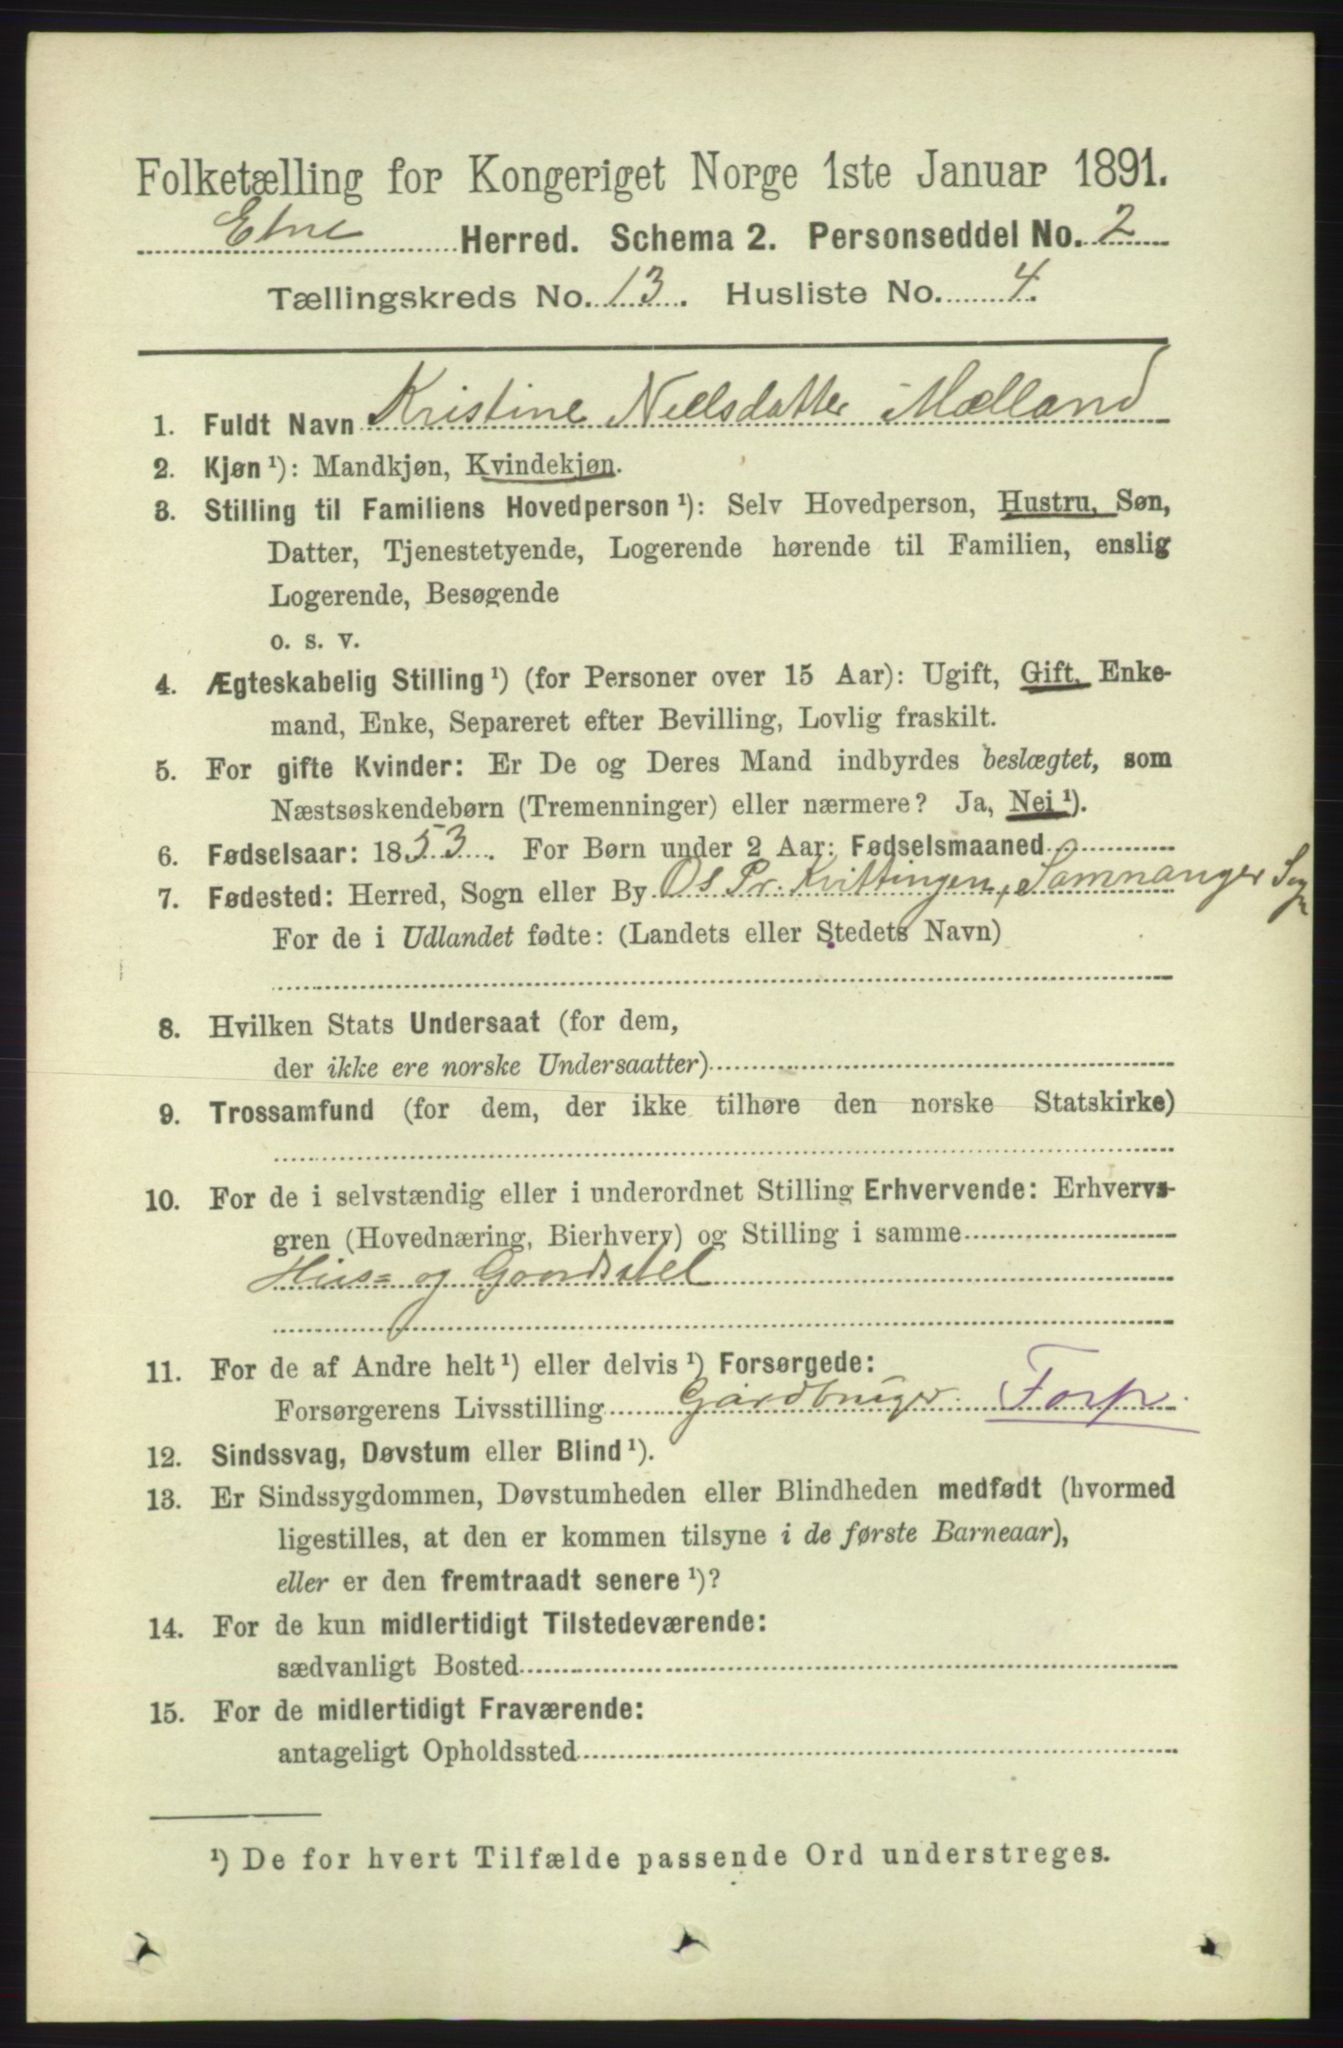 Folketælling for Kongeriget Norge 1ste Januar 1891.
Etne Herred. Schema 2. Personseddel No. 2
Tællingskreds No. 13. Husliste No. 4.
1. Fuldt Navn Kristine Nielsdatter Mælland
2. Kjøn ¹): Mandkjøn, Kvindekjøn.
3. Stilling til Familiens Hovedperson ¹): Selv Hovedperson, Hustru, Søn,
Datter, Tjenestetyende, Logerende hørende til Familien, enslig
Logerende, Besøgende
o. s. v.
4. Ægteskabelig Stilling ¹) (for Personer over 15 Aar): Ugift, Gift, Enke-
mand, Enke, Separeret efter Bevilling, Lovlig fraskilt.
5. For gifte Kvinder: Er De og Deres Mand indbyrdes beslægtet, som
Næstsøskendebørn (Tremenninger) eller nærmere? Ja, Nei ¹).
6. Fødselsaar: 1853. For Børn under 2 Aar: Fødselsmaaned
7. Fødested: Herred, Sogn eller By Os Pr. Kvittingen, Samnanger Sogn
For de i Udlandet fødte: (Landets eller Stedets Navn)
8. Hvilken Stats Undersaat (for dem,
der ikke ere norske Undersaatter)
9. Trossamfund (for dem, der ikke tilhøre den norske Statskirke)
10. For de i selvstændig eller i underordnet Stilling Erhvervende: Erhvervs-
gren (Hovednæring, Bierhverv) og Stilling i samme
Hus= og Gaardstel
11. For de af Andre helt ¹) eller delvis ¹) Forsørgede:
Forsørgerens Livsstilling Gårdbruger. Forp.
12. Sindssvag, Døvstum eller Blind ¹).
13. Er Sindssygdommen, Døvstumheden eller Blindheden medfødt (hvormed
ligestilles, at den er kommen tilsyne i de første Barneaar),
eller er den fremtraadt senere ¹)?
14. For de kun midlertidigt Tilstedeværende:
sædvanligt Bosted
15. For de midlertidigt Fraværende:
antageligt Opholdssted
¹) De for hvert Tilfælde passende Ord understreges.